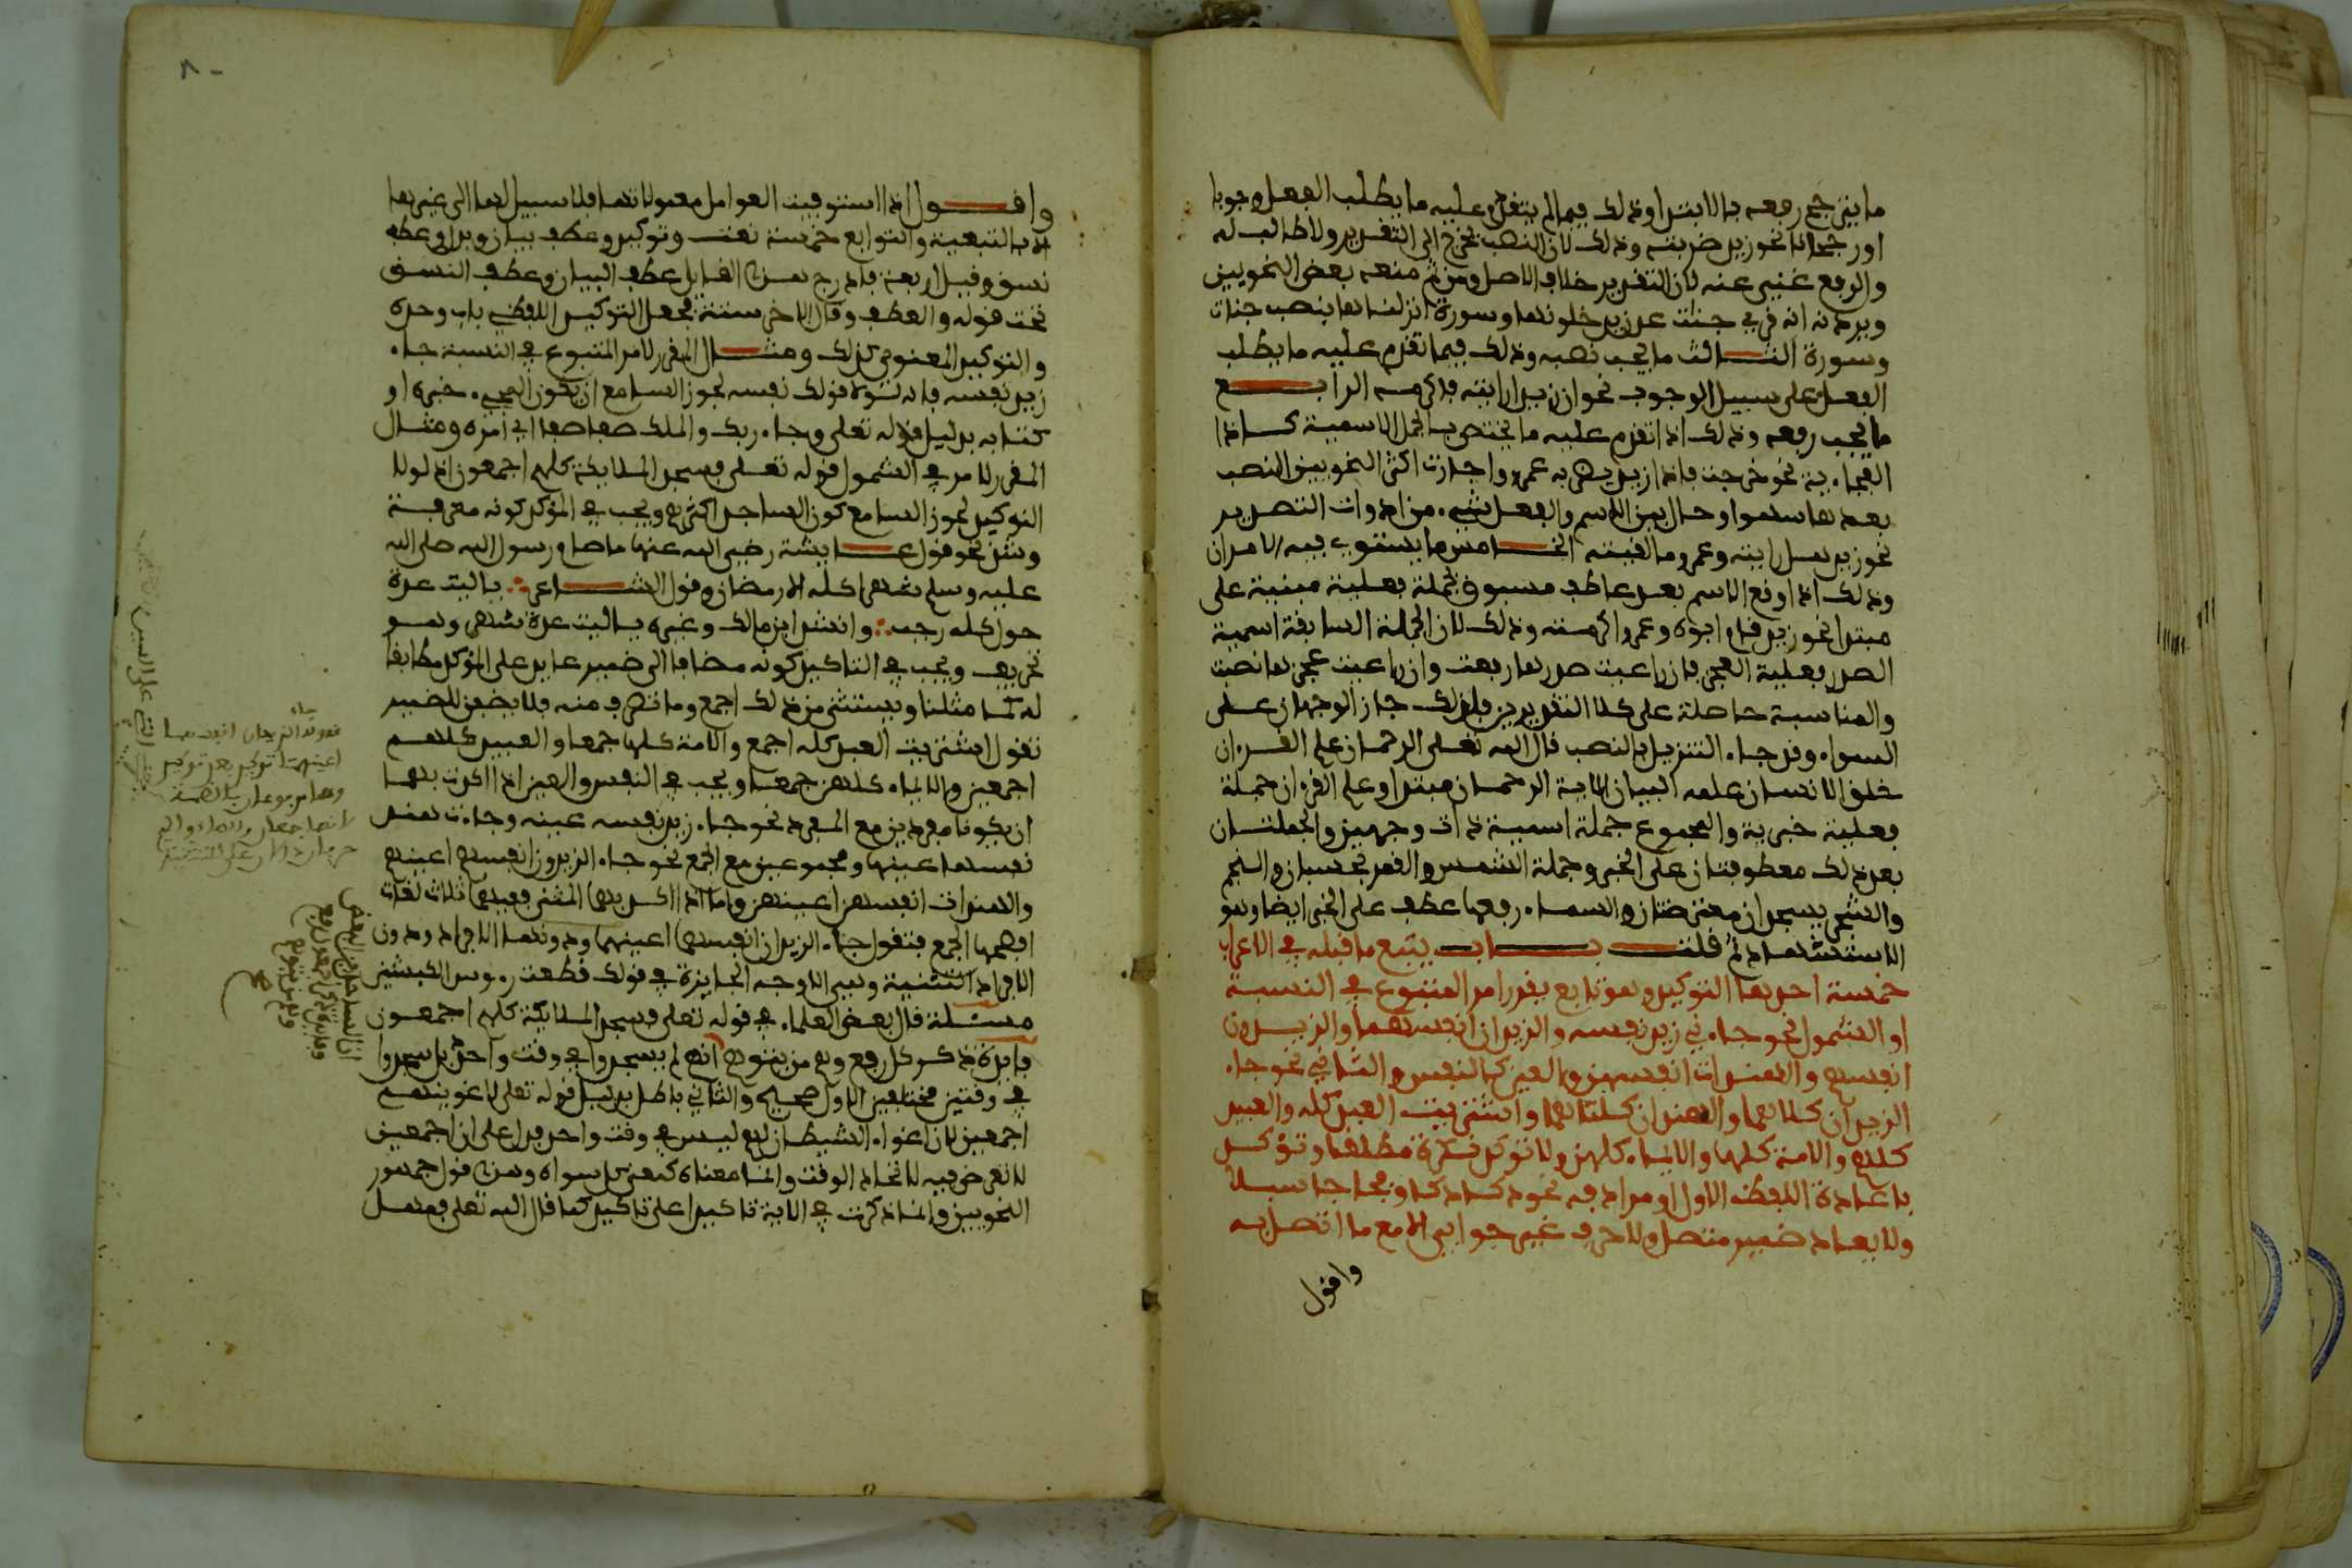 ما يترجح رفعه بالابتدا وذلك فيما لم يتقدم عليه ما يطلب الفعل وجوبا
او رجحانا نحو زيد ضربته وذلك لان النصب محوج الى التقدير ولا طالب له
والرفع غني عنه لان التقدير خلاف الاصل ومن ثم منعه بعض النحويين
ويرده انه قرئ جنات عدن يدخلونها وسورة انزلناها بنصب جنات
وسورة الثالث ما يجب نصبه وذلك فيما تقدم عليه ما يطلب
الفعل على سبيل الوجوب نحو ان زيدا رايته فاكرمه الرابع
ما يجب رفعه وذلك اذا تقدم عليه ما يختص بالجمل الاسمية كاذا
الفجاءية نحو خرجت فاذا زيد يضربه عمرو واجازت اكثر النحويين النصب
بعدها سهوا وحال بين الاسم والفعل شيء من ادوات التصدير
نحو زيد هل رايته وعمرو ما لقيته الخامس ما يستوي فيه الامران
وذلك اذا وقع الاسم بعد عاطف مسبوق بجملة فعلية مبنية على
مبتدا نحو زيد قام ابوه وعمرا اكرمته وذلك لان الجملة السابقة اسمية
الصدر فعلية العجز فان راعيت صدرها رفعت وان راعيت عجزها نصبت
والمناسبة حاصلة على كلا التقديرين فلذلك جاز الوجهان على
السواء وقد جاء التنزيل بالنصب قال الله تعلى الرحمان علم القرءان
خلق الانسان علمه البيان الاية الرحمان مبتدا وعلم القرءان جملة
فعلية خبرية والمجموع جملة اسمية ذات وجهين والجملتان
بعد ذلك معطوفتان على الخبر وجملة الشمس والقمر بحسبان والنجم
والشجر يسجدان معترضتان والسماء رفعها عطف على الخبر ايضا وهو
الاستشهاد ثم قلت باب يتبع ما قبله في الاعراب
خمسة احدها التوكيد وهو تابع يقرر امر المتبوع في النسبة
او الشمول نحو جاءني زيد نفسه والزيدان انفسهما والزيدون
انفسهم والهندات انفسهن والعين كالنفس والثاني نحو جاء
الزيدان كلاهما والهندان كلتاهما واشتريت العبد كله والعبيد
كلهم والامة كلها والاماء كلهن ولا توكد نكرة مطلقا وتؤكد
باعادة اللفظ الاول او مرادفه نحو دكا دكا وفجاجا سبلا
ولا يعاد ضمير متصل ولا حرف غير جوابي الا مع ما اتصل به
واقول
وافول اذا استوفيت العوامل معمولاتها فلا سبيل لها الى غيرها
الا بالتبعية والتوابع خمسة نعت وتوكيد وعطف بيان وبدل وعطف
نسق وقيل اربعة فادرج هذا القايل عطف البيان وعطف النسق
تحت قوله والعطف وقال الاخر ستة فجعل التوكيد اللفظي باب وحده
والتوكيد المعنوي كذلك ومثال المقرر لامر المتبوع في النسبة جاء
زيد نفسه فانه لولا قولك نفسه لجوز السامع ان يكون الجاءي خبره او
كتابه بدليل قوله تعلى وجاء ربك والملك صفا صفا اي امره ومثال
المقرر لامره في الشمول قوله تعلى فسجد الملايكة كلهم اجمعون اذ لولا
التوكيد لجوز السامع كون الساجد اكثرهم ويجب في المؤكد كونه معرفة
وشذ نحو قول عايشة رضي الله عنها ما صام رسول الله صلى الله
عليه وسلم شهرا كله الا رمضان وقول الشاعر يا ليت عدة
حول كله رجب وانشد ابن مالك وغيره يا ليت عدة شهر وهو
تحريف ويجب في التاكيد كونه مضافا الى ضمير عايد على المؤكد مطابقا
له كما مثلنا ويستثنى من ذلك اجمع وما تصرف منه فلا يضفن للضمير
تقول اشتريت العبد كله اجمع والامة كلها جمعا والعبيد كلهم
اجمعين والاماء كلهن جمع ويجب في النفس والعين اذا اكدت بهما
ان يكونا مفردين مع المفرد نحو جاء زيد نفسه عينه وجاءت هند
نفسها عينها ومجموعين مع الجمع نحو جاء الزيدون انفسهم اعينهم
والهندات انفسهن اعينهن واما اذا اكد بهما المثنى ففيهما ثلاث لغات
افصحها الجمع فتقول جاء الزيدان انفسهما اعينهما ودونها الافراد ودون
الافراد التثنية وهي الاوجه الجايزة في قولك قطعت رءوس الكبشين
مسئلة قال بعض العلماء في قوله تعلى فسجد الملايكة كلهم اجمعون
فايدة ذكر كل رفع وهم من يتوهم انهم لم يسجدوا في وقت واحد بل سجدوا
في وقتين مختلفين الاول صحيح والثاني باطل بدليل قوله تعلى لاغوينهم
اجمعين لان اغواء الشيطان لهم ليس في وقت واحد فدل على ان اجمعين
لا تعرض فيه لاتحاد الوقت وانما معناه كمعنى كل سواء وهذا قول جمهور
النحويين وانما ذكرت في الاية تاكيدا على تاكيد كما قال الله تعلى فمهل
اعينهما توكيد بعد توكيد